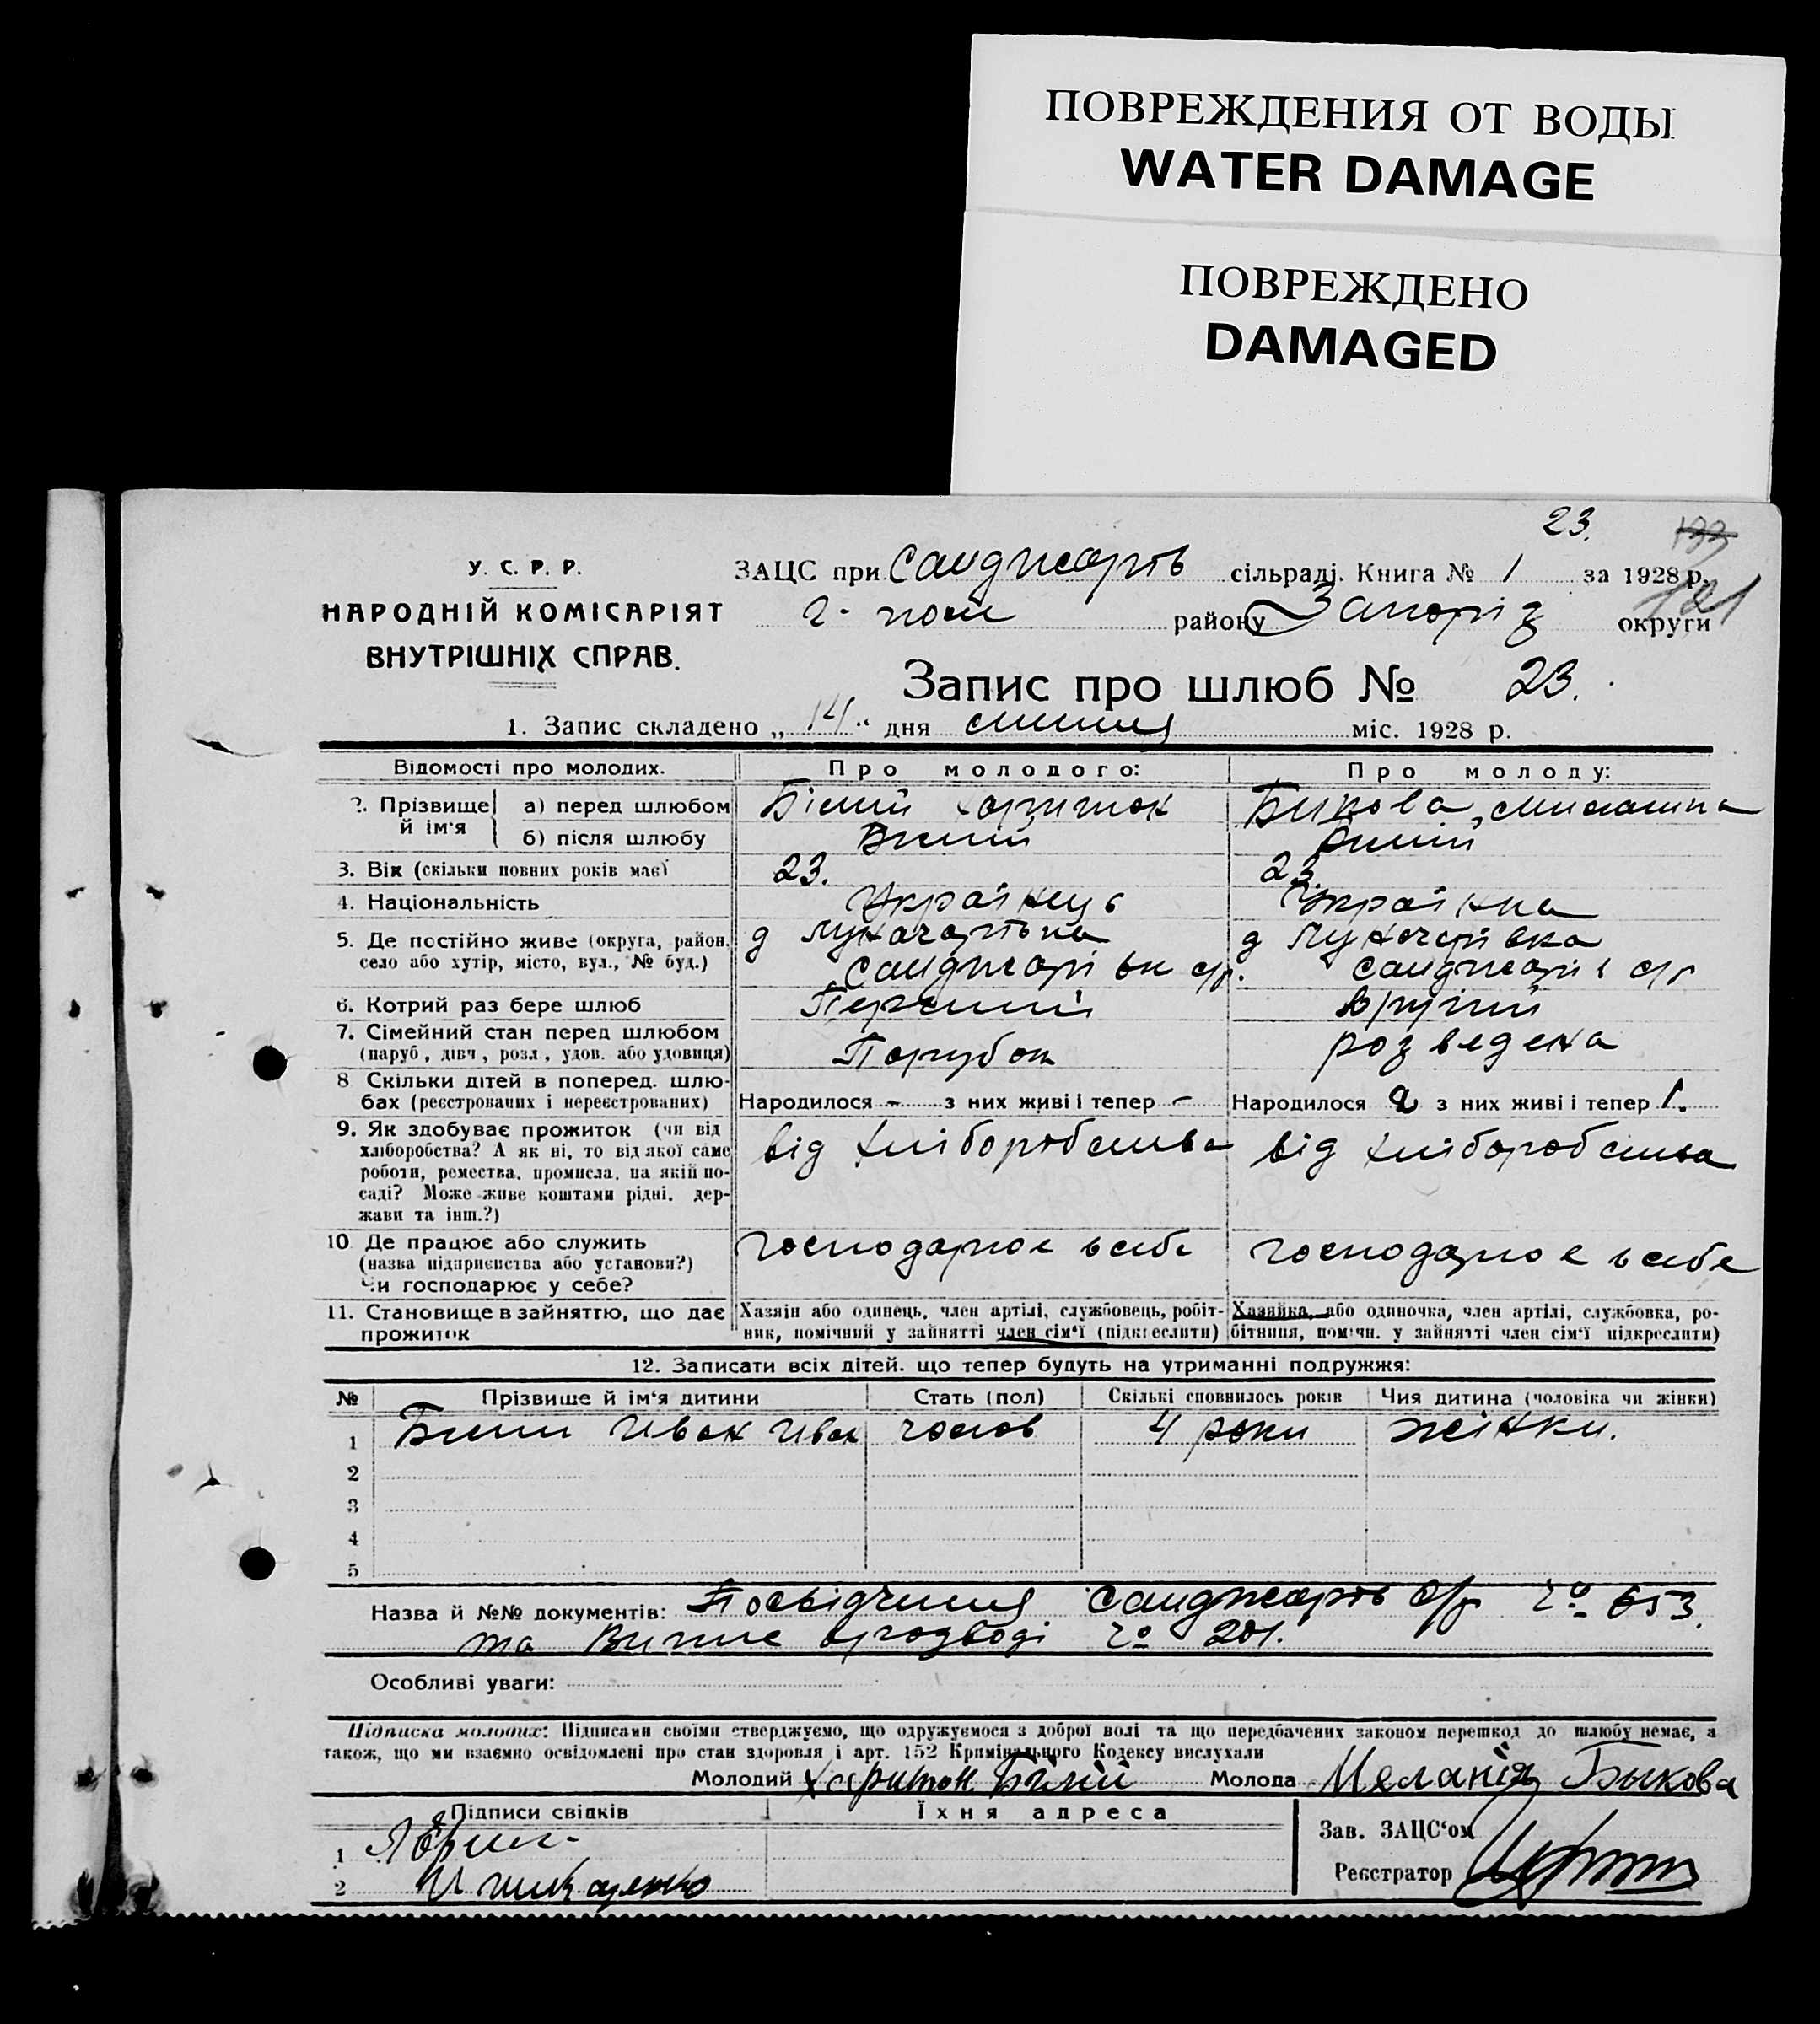 ПОВРЕЖДЕНИЯ ОТ ВОДЫ
WATER DAMAGE
ПОВРЕЖДЕНО
DAMAGED
23.
У. С. Р. Р.
НАРОДНІЙ КОМІСАРІЯТ
ВНУТРІШНІХ СПРАВ.
ЗАЦС при Санджарів сільраді. Книга № 1 за 1928 р.
121
району Запоріз округи
Запис про шлюб № 23.
1. Запис складено „14“ дня липня міс. 1928 р.
Відомості про молодих. Про молодого: Про молоду:
2. Прізвище й ім'я а) перед шлюбом Білий Харитон Бикова Миланина
б) після шлюбу Білий Білий
3. Вік (скільки повних років має) 23. 23
4. Національність Українець Українка
5. Де постійно живе (округа, район, д Луначарівка д Луначарівка
село або хутір, місто, вул., № буд.) Санджарівки с/р. Санджарів с/р
6. Котрий раз бере шлюб Перший другий
7. Сімейний стан перед шлюбом
(паруб., дівч., розл., удов. або удовиця) Парубок розведена
8 Скільки дітей в поперед. шлю-
бах (реєстрованих і нереєстрованих) Народилося - з них живі і тепер - Народилося 2 з них живі і тепер 1.
9. Як здобуває прожиток (чи від
хліборобства? А як ні, то від якої саме
роботи, ремества, промисла, на якій по-
саді? Може живе коштами рідні, дер-
жави та інш.?)
від хліборобства від хліборобства
10. Де працює або служить
(назва підприєнства або установи?)
Чи господарює у себе?
господарює в себе господарює в себе
11. Становище в зайняттю, що дає
прожиток
Хазяін або одинець, член артілі, службовець, робіт-
ник, помічний у зайнятті член сім'ї (підкреслити)
Хазяйка, або одиночка, член артілі, службовка, ро-
бітниця, помічн. у зайнятті член сім'ї підкреслити)
12. Записати всіх дітей, що тепер будуть на утриманні подружжя:
№ Прізвише й ім'я дитини Стать (пол) Скількі сповнилось років Чия дитина (чоловіка чи жінки)
1 Білий Иван Иван чолов 4 роки жінки.
2
3
4
5
Назва й №№ документів: Посвідчення Санджарів с/р № 653.
та Випис розводі № 201.
Особливі уваги:
Підписка молодих: Підписами своїми стверджуємо, що одружуємося з доброї волі та що передбачених законом перешкод до шлюбу немає, а
також, що ми взаємно освідомлені про стан здоровля і арт. 152 Кримінального Кодексу вислухали
Молодий Харитон Білий Молода Меланія Быкова
Підписи свідків Їхня адреса
1
2
Зав. ЗАЦС'ом
Реєстратор